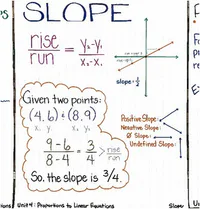 SLOPE
rise
run
=
y₂-y₁
x₂-x₁
slope=½
Given two points:
(4,6) & (8,9)
x₁ y₁ x₂ y₂
9-6
8-4
=
3
4
> rise
run
So, the slope is 3/4.
Positive Slope:
Negative Slope:
Ø Slope:
Undefined Slope:
Unit 4: Proportions to Linear Equations
Slope